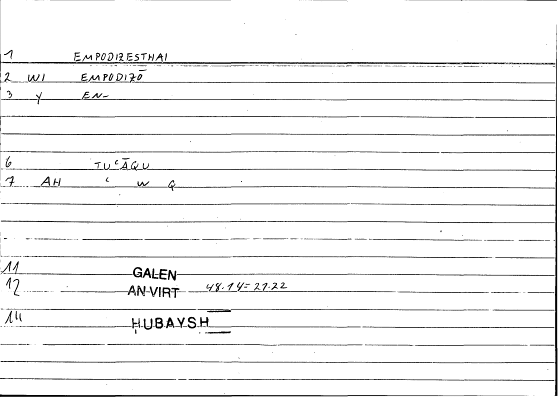 1 EMPODIZESTHAI
2 WI EMPODIZŌ
3 Y EN-
6 TUʿĀQU
7 AH ʿ W Q
11 GALEN
12 AN VIRT 48.14=27.22
14 HUBAYSH